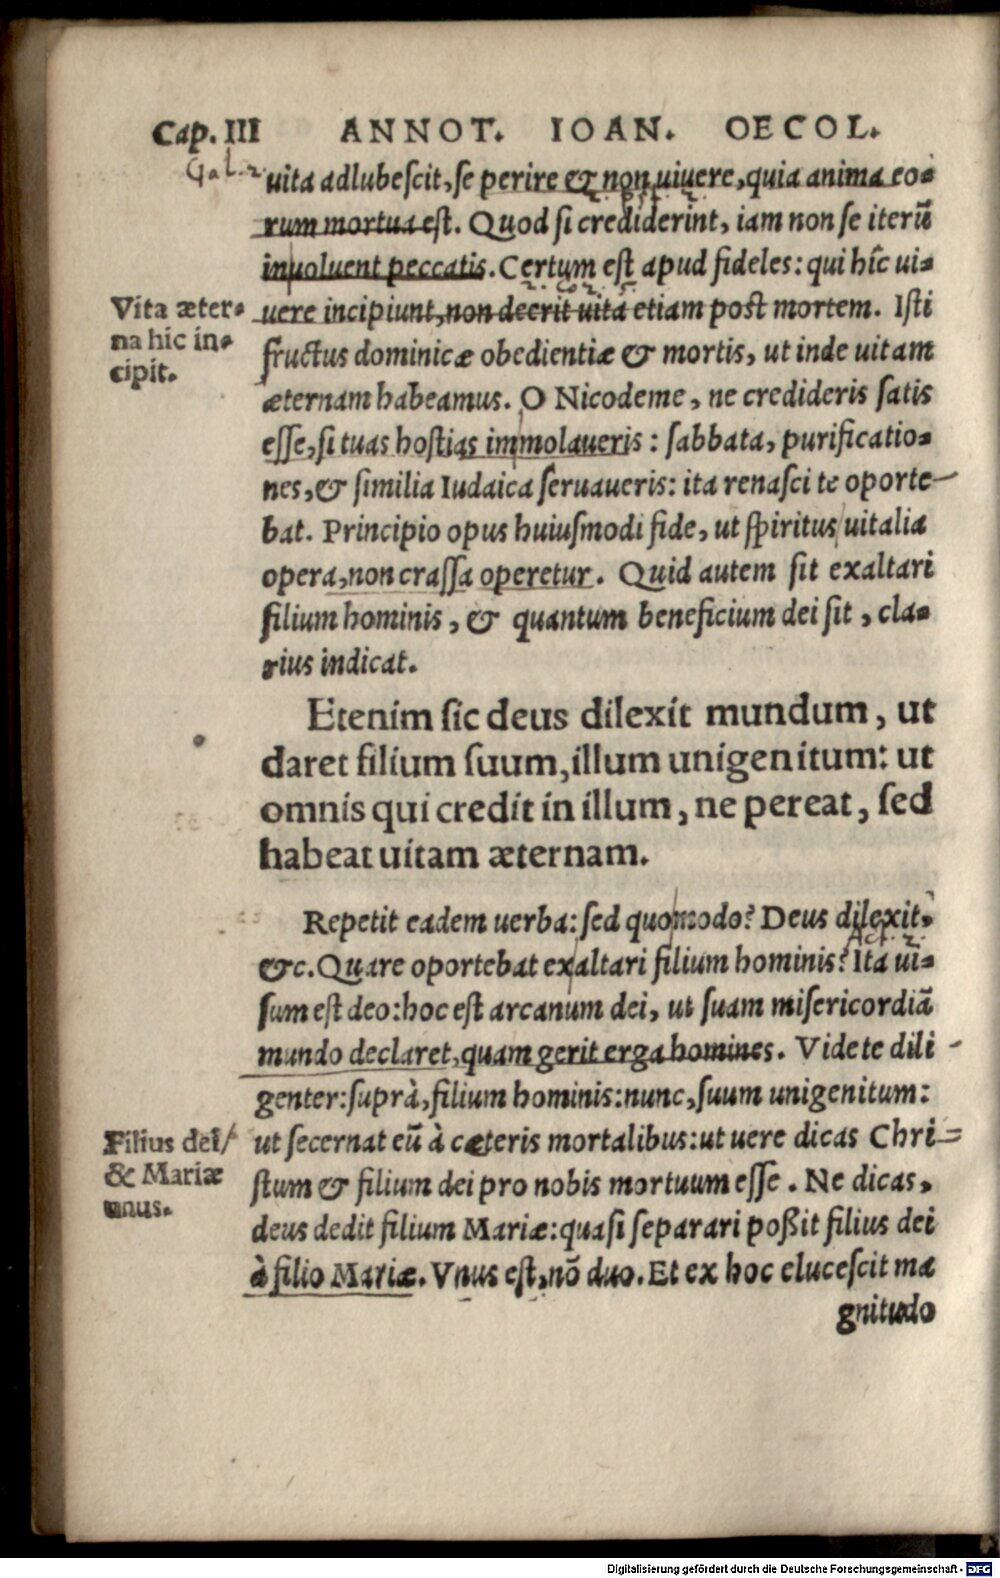 Cap. III ANNOT. IOAN. OECOL.
Gal. 2
uita adlubeſcit, ſe perire & non uiuere, quia anima eo-
rum mortua eſt. Quod ſi crediderint, iam non ſe iterũ
inuoluent peccatis. Certum eſt apud fideles: qui hîc ui-
2. Co. 5
Vita æter-
na hic in-
cipit.
uere incipiunt, non deerit uita etiam post mortem. Iſti
fructus dominicæ obedientiæ & mortis, ut inde uitam
æternam habeamus. O Nicodeme, ne credideris ſatis
eſſe, ſi tuas hoſtias immolaueris: ſabbata, purificatio-
nes, & ſimilia Iudaica ſeruaueris: ita renaſci te oporte-
bat. Principio opus huiuſmodi fide, ut ſpiritus uitalia
opera, non craſſa operetur. Quid autem ſit exaltari
filium hominis, & quantum beneficium dei ſit, cla-
rius indicat.
Etenim ſic deus dilexit mundum, ut
daret filium ſuum, illum unigenitum: ut
omnis qui credit in illum, ne pereat, ſed
habeat uitam æternam.
Repetit eadem uerba: ſed quomodo? Deus dilexit,
Act. 2.
&c. Quare oportebat exaltari filium hominis? Ita ui-
ſum eſt deo: hoc eſt arcanum dei, ut ſuam miſericordiã
mundo declaret, quam gerit erga homines. Videte dili
genter: ſuprà, filium hominis: nunc, ſuum unigenitum:
Filius dei
& Mariæ
unus.
ut ſecernat eũ à cæteris mortalibus: ut uere dicas Chri-
ſtum & filium dei pro nobis mortuum eſſe. Ne dicas,
deus dedit filium Mariæ: quaſi ſeparari poßit filius dei
à filio Mariæ. Vnus eſt, nõ duo. Et ex hoc eluceſcit ma
gnitudo
Digitalisierung gefördert durch die Deutsche Forschungsgemeinschaft - DFG